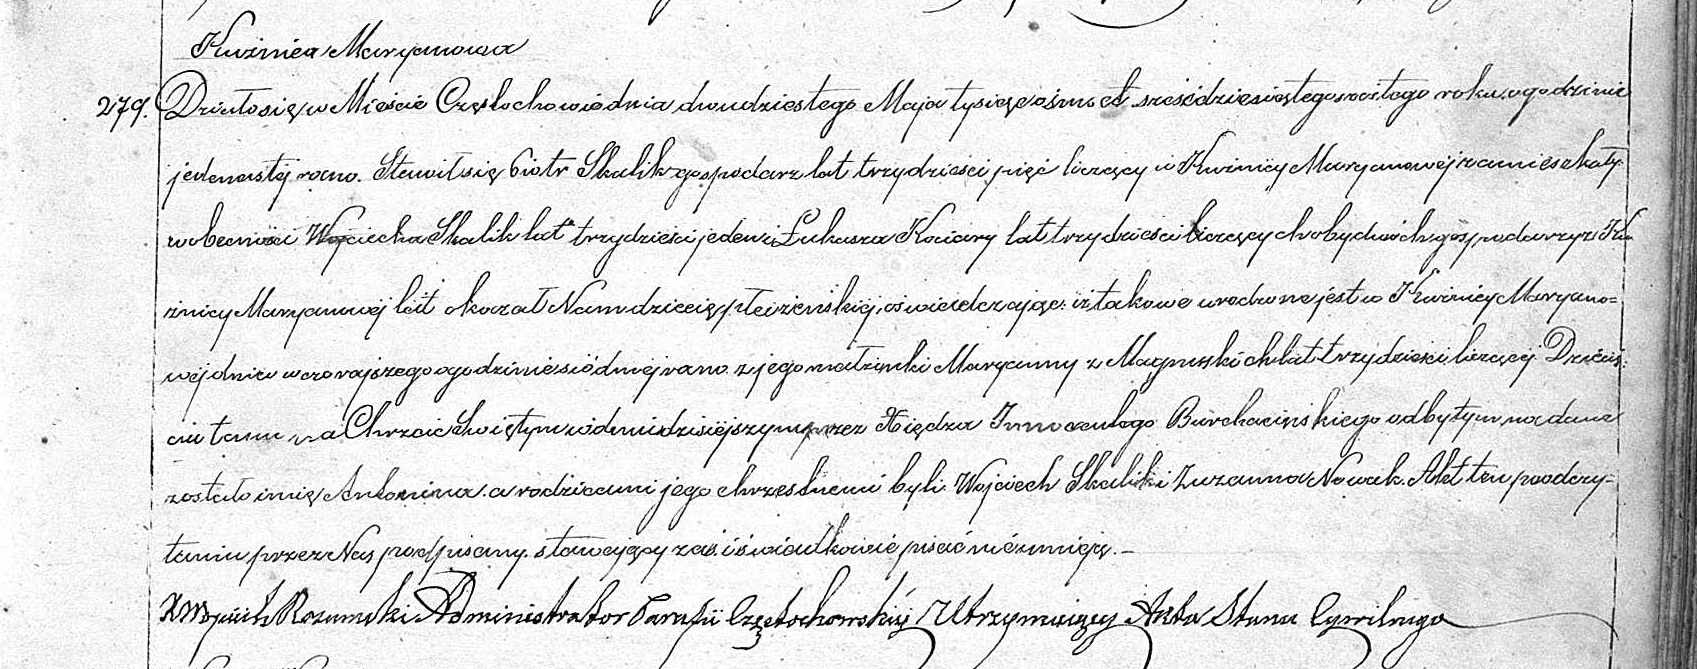 Kuźnica Maryanowa
279. Działo się w Mieście Częstochowie dnia dwudziestego Maja tysiąc ośmset sześćdziesiątego szóstego roku, o godzinie
jedenastej rano. Stawił się Piotr Skalik gospodarz lat trzydzieści pięć liczący w Kuźnicy Maryanowej zamieszkały
w obecności Wojciecha Skalik lat trzydzieści jeden i Łukasza Kociary lat trzydzieści liczących obydwóch gospodarzy z Ku
źnicy Maryanowej lat okazał Nam dziecię płci żeńskiej, oświadczając: iż takowe urodzone jest w Kuźnicy Maryano=
wej dnia wczorajszego o godzinie siódmej rano z jego małżonki Maryanny z Magnuskich lat trzydzieści liczącej. Dziecię=
ciu temu na Chrzcie Świętym w dniu dzisiejszym przez Xiędza Innocentego Burchacińskiego odbytym nadane
zostało imię Antonina a rodzicami jego chrzestnemi byli Wojciech Skalik i Zuzanna Nowak. Akt ten po odczy=
taniu przez Nas podpisany. stawający zaś i świadkowie pisać nie umieją. —
X Wojciech Rozumski Administrator Parafii Częstochowskiej Utrzymujący Akta Stanu Cywilnego